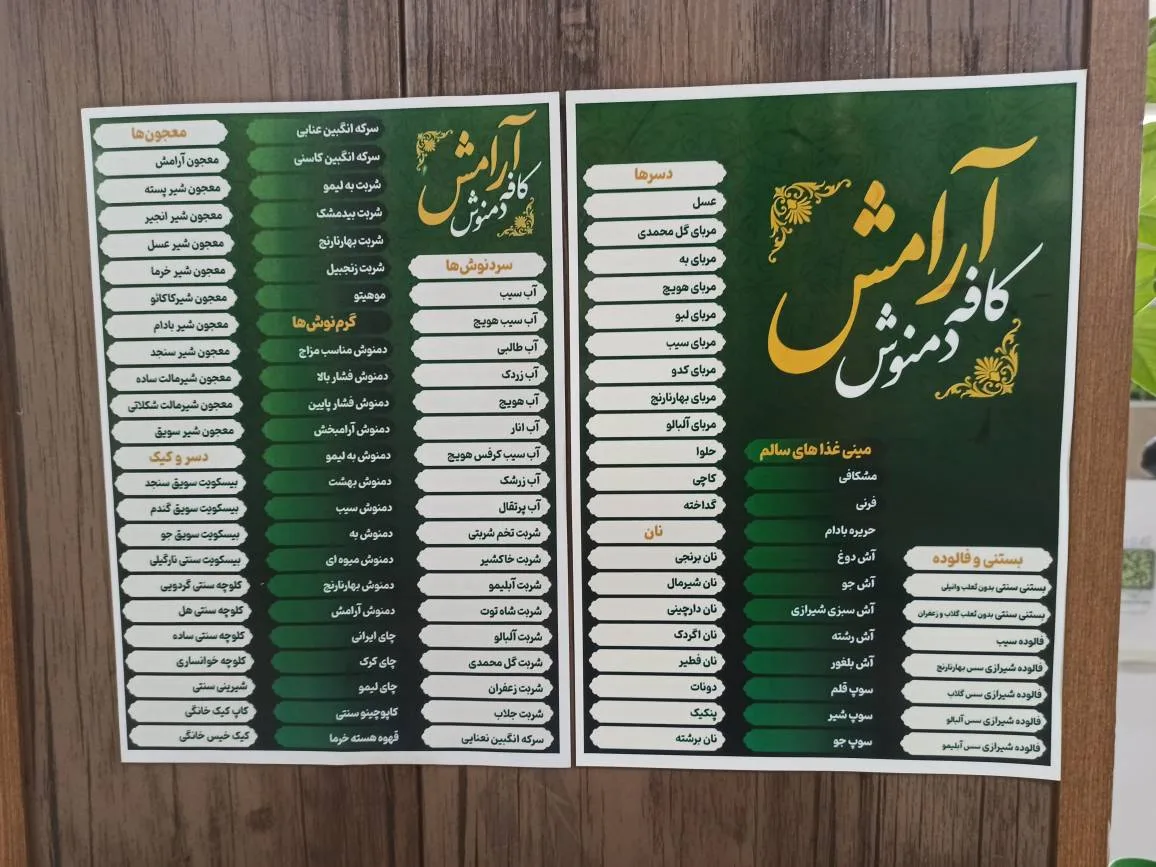 آرامش
کافه دمنوش
بستنی و فالوده
بستنی سنتی بدون ثعلب وانیلی
بستنی سنتی بدون ثعلب گلاب و زعفران
فالوده سیب
فالوده شیرازی سس بهارنارنج
فالوده شیرازی سس گلاب
فالوده شیرازی سس آلبالو
فالوده شیرازی سس آبلیمو
مینی غذا های سالم
مشکافی
فرنی
حریره بادام
آش دوغ
آش جو
آش سبزی شیرازی
آش رشته
آش بلغور
سوپ قلم
سوپ شیر
سوپ جو
دسرها
عسل
مربای گل محمدی
مربای به
مربای هویج
مربای لبو
مربای سیب
مربای کدو
مربای بهارنارنج
مربای آلبالو
حلوا
کاچی
گداخته
نان
نان برنجی
نان شیرمال
نان دارچینی
نان اگردک
نان فطیر
دونات
پنکیک
نان برشته
آرامش
کافه دمنوش
سردنوش‌ها
آب سیب
آب سیب هویج
آب طالبی
آب زردک
آب هویج
آب انار
آب سیب کرفس هویج
آب زرشک
آب پرتقال
شربت تخم شربتی
شربت خاکشیر
شربت آبلیمو
شربت شاه توت
شربت آلبالو
شربت گل محمدی
شربت زعفران
شربت جلاب
سرکه انگبین نعنایی
سرکه انگبین عنابی
سرکه انگبین کاسنی
شربت به لیمو
شربت بیدمشک
شربت بهارنارنج
شربت زنجبیل
موهیتو
گرم‌نوش‌ها
دمنوش مناسب مزاج
دمنوش فشار بالا
دمنوش فشار پایین
دمنوش آرامبخش
دمنوش به لیمو
دمنوش بهشت
دمنوش سیب
دمنوش به
دمنوش میوه ای
دمنوش بهارنارنج
دمنوش آرامش
چای ایرانی
چای کرک
چای لیمو
کاپوچینو سنتی
قهوه هسته خرما
معجون‌ها
معجون آرامش
معجون شیر پسته
معجون شیر انجیر
معجون شیر عسل
معجون شیر خرما
معجون شیرکاکائو
معجون شیر بادام
معجون شیر سنجد
معجون شیرمالت ساده
معجون شیرمالت شکلاتی
معجون شیر سویق
دسر و کیک
بیسکویت سویق سنجد
بیسکویت سویق گندم
بیسکویت سویق جو
بیسکویت سنتی نارگیلی
کلوچه سنتی گردویی
کلوچه سنتی هل
کلوچه سنتی ساده
کلوچه خوانساری
شیرینی سنتی
کاپ کیک خانگی
کیک خیس خانگی